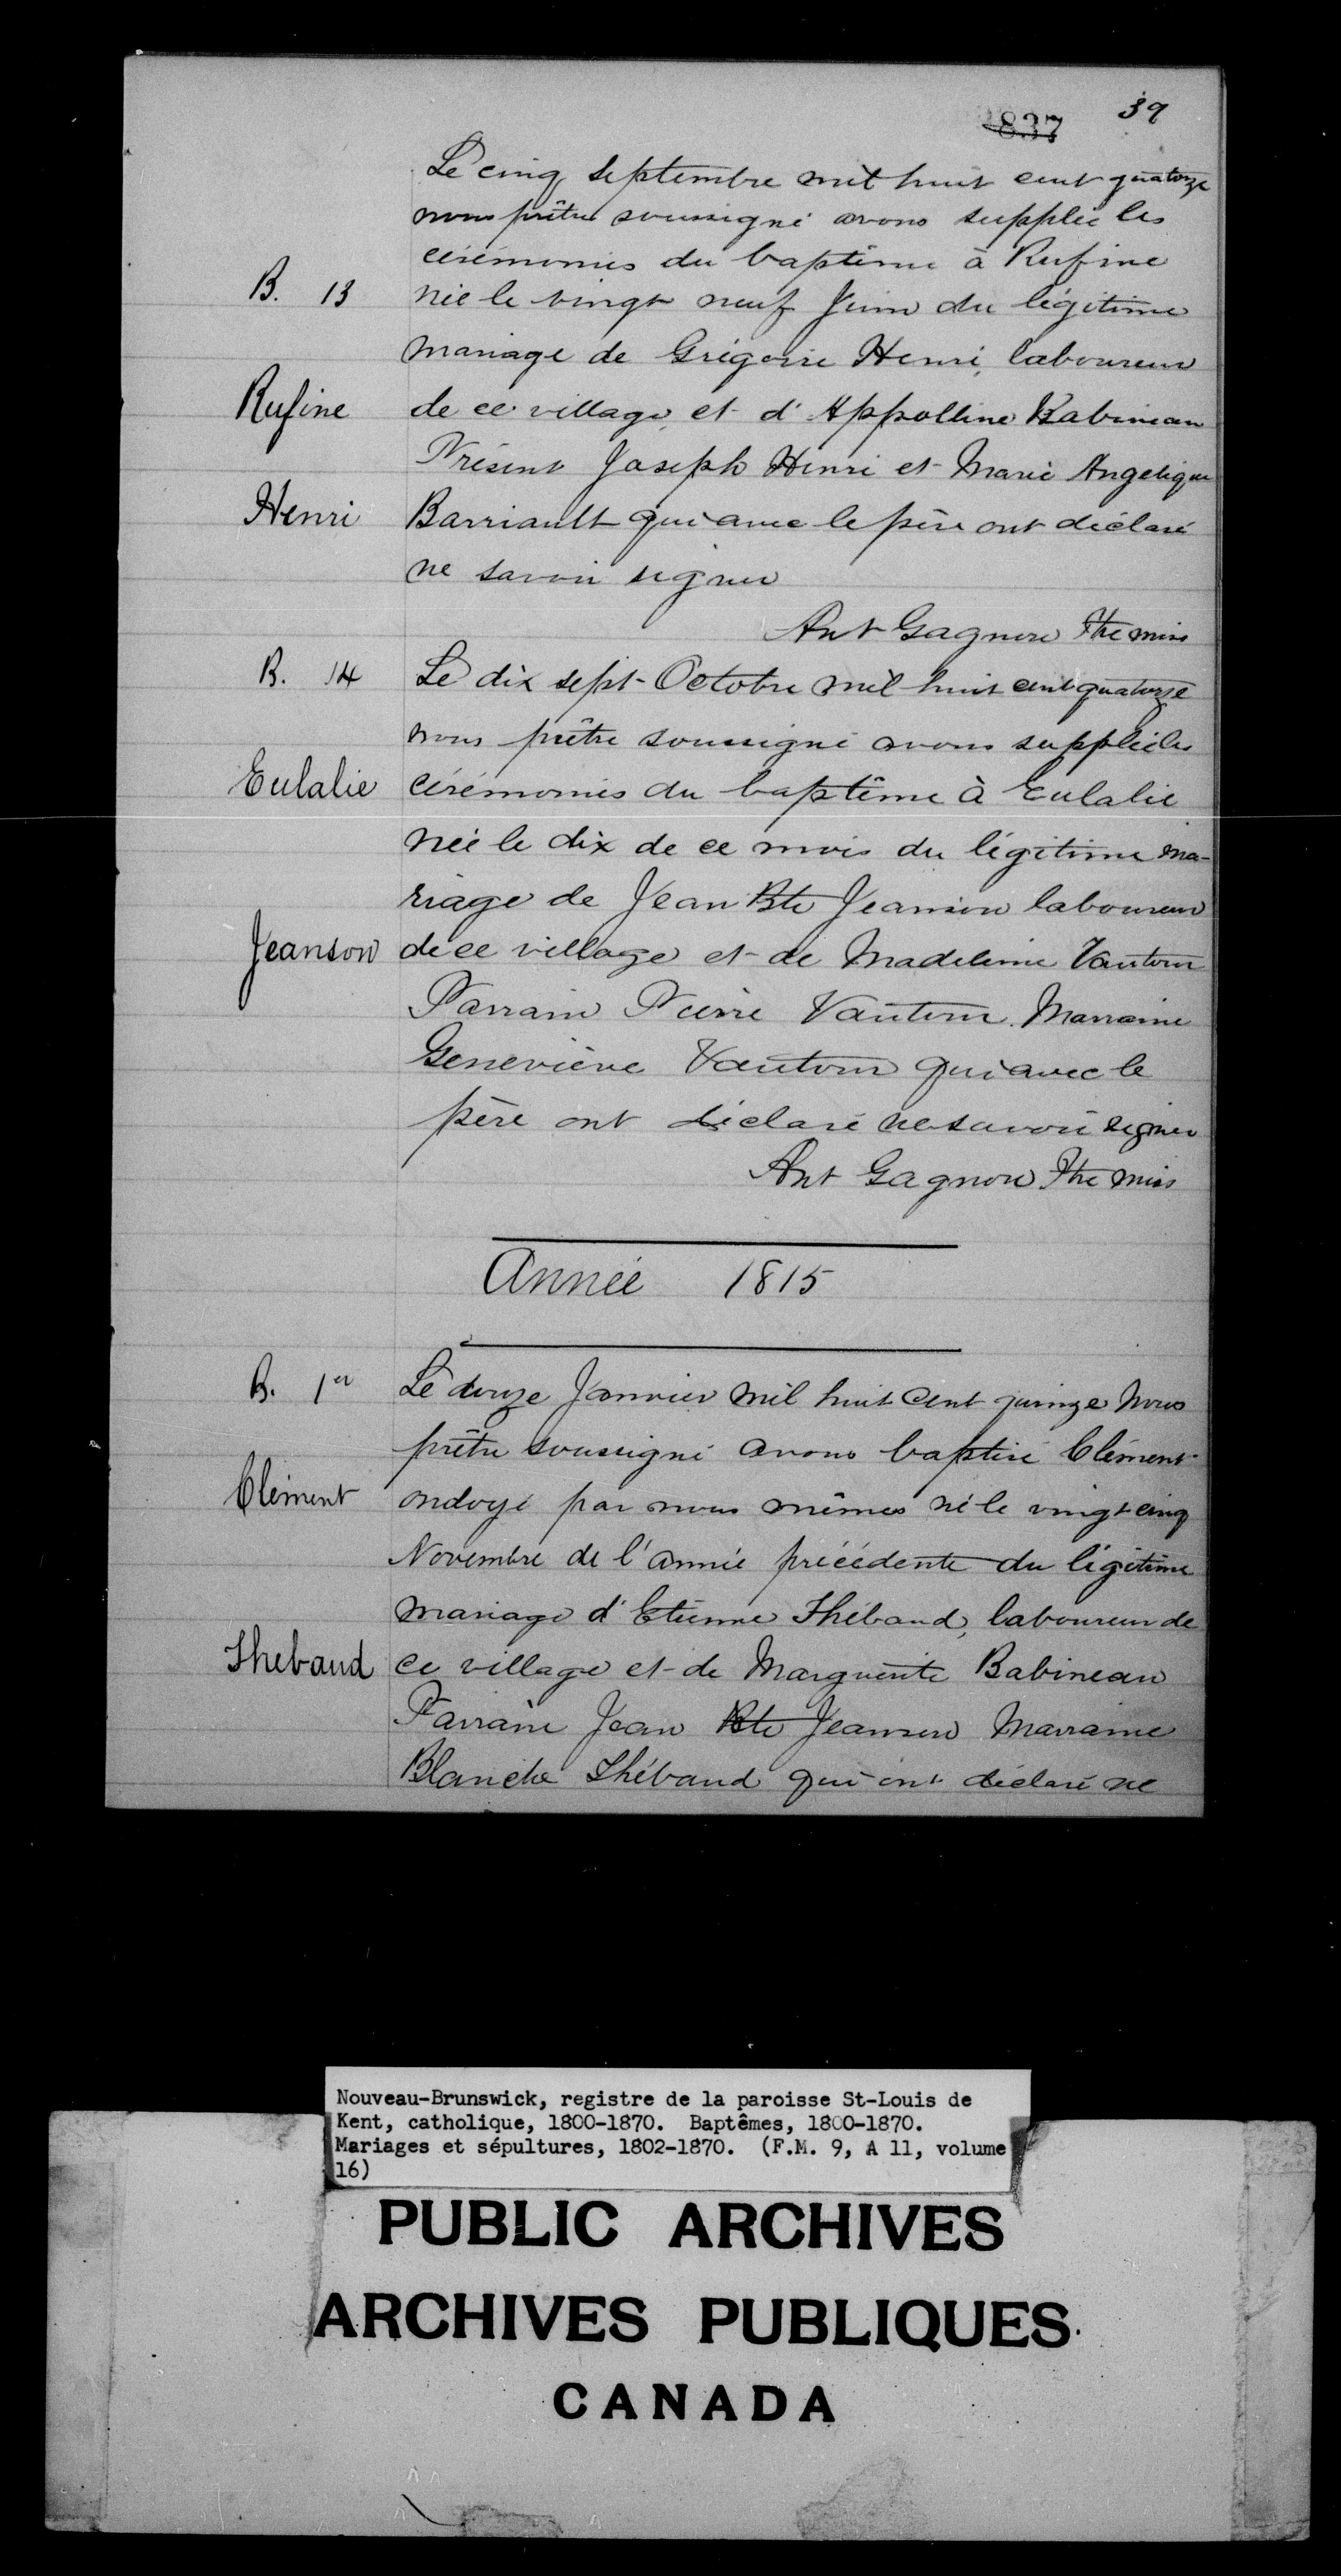 39
2837
Le cinq Septembre mil huit cent quatorze
nous prêtre soussigné avons supplée les
cérémonies du baptême à Rufine
B. 13
née le vingt neuf Juin du légitime
mariage de Grégoire Henri, laboureur
Rufine
de ce village, et d'Appolline Babineau
Présent Joseph Henri et Marie Angelique
Henri
Barriault qui avec le père ont déclaré
ne savoir signer
Ant Gagnon Ptre miss
B. 14
Le dix sept Octobre mil huit cent quatorze
nous prêtre soussigné avons supplée les
Eulalie
cérémonies du baptême à Eulalie
née le dix de ce mois du légitime ma-
riage de Jean Bte Jeanson laboureur
Jeanson
de ce village et de Madeleine Vautour
Parrain Pierre Vautour. Marraine
Geneviève Vautour qui avec le
père ont déclaré ne savoir signer
Ant Gagnon Ptre miss
Année 1815
B. 1er
Le douze Janvier mil huit cent quinze Nous
prêtre soussigné avons baptisé Clément
Clément
ondoyé par nous mêmes né le vingt cinq
Novembre de l'année précédente du légitime
mariage d'Etienne Thébaud, laboureur de
Thebaud
ce village et de Marguerite Babineau
Parrain Jean Bte Jeanson Marraine
Blanche Thébaud qui ont déclaré ne
Nouveau-Brunswick, registre de la paroisse St-Louis de
Kent, catholique, 1800-1870. Baptêmes, 1800-1870.
Mariages et sépultures, 1802-1870. (F.M. 9, A 11, volume
16)
PUBLIC ARCHIVES
ARCHIVES PUBLIQUES
CANADA